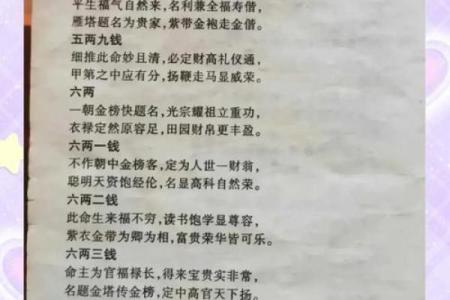 平生福气自然来，名利兼全福寿偕，
雁塔题名为贵家，紫带金袍走金偕。
五两九钱
细推此命妙且清，必定财高礼仪通，
甲第之中应有分，扬鞭走马显威荣。
六两
一朝金榜快题名，光宗耀祖立重功，
衣禄定然原容足，田园财帛更丰盈。
六两一钱
不作朝中金榜客，定为人世一财翁，
聪明天资饱经伦，名显高科自然荣。
六两二钱
此命生来福不穷，读书饱学显尊容，
紫衣金带为卿为相，富贵荣华皆可乐。
六两三钱
命主为官福禄长，得来宝贵实非常，
名题金塔传金榜，定中高官天下扬。